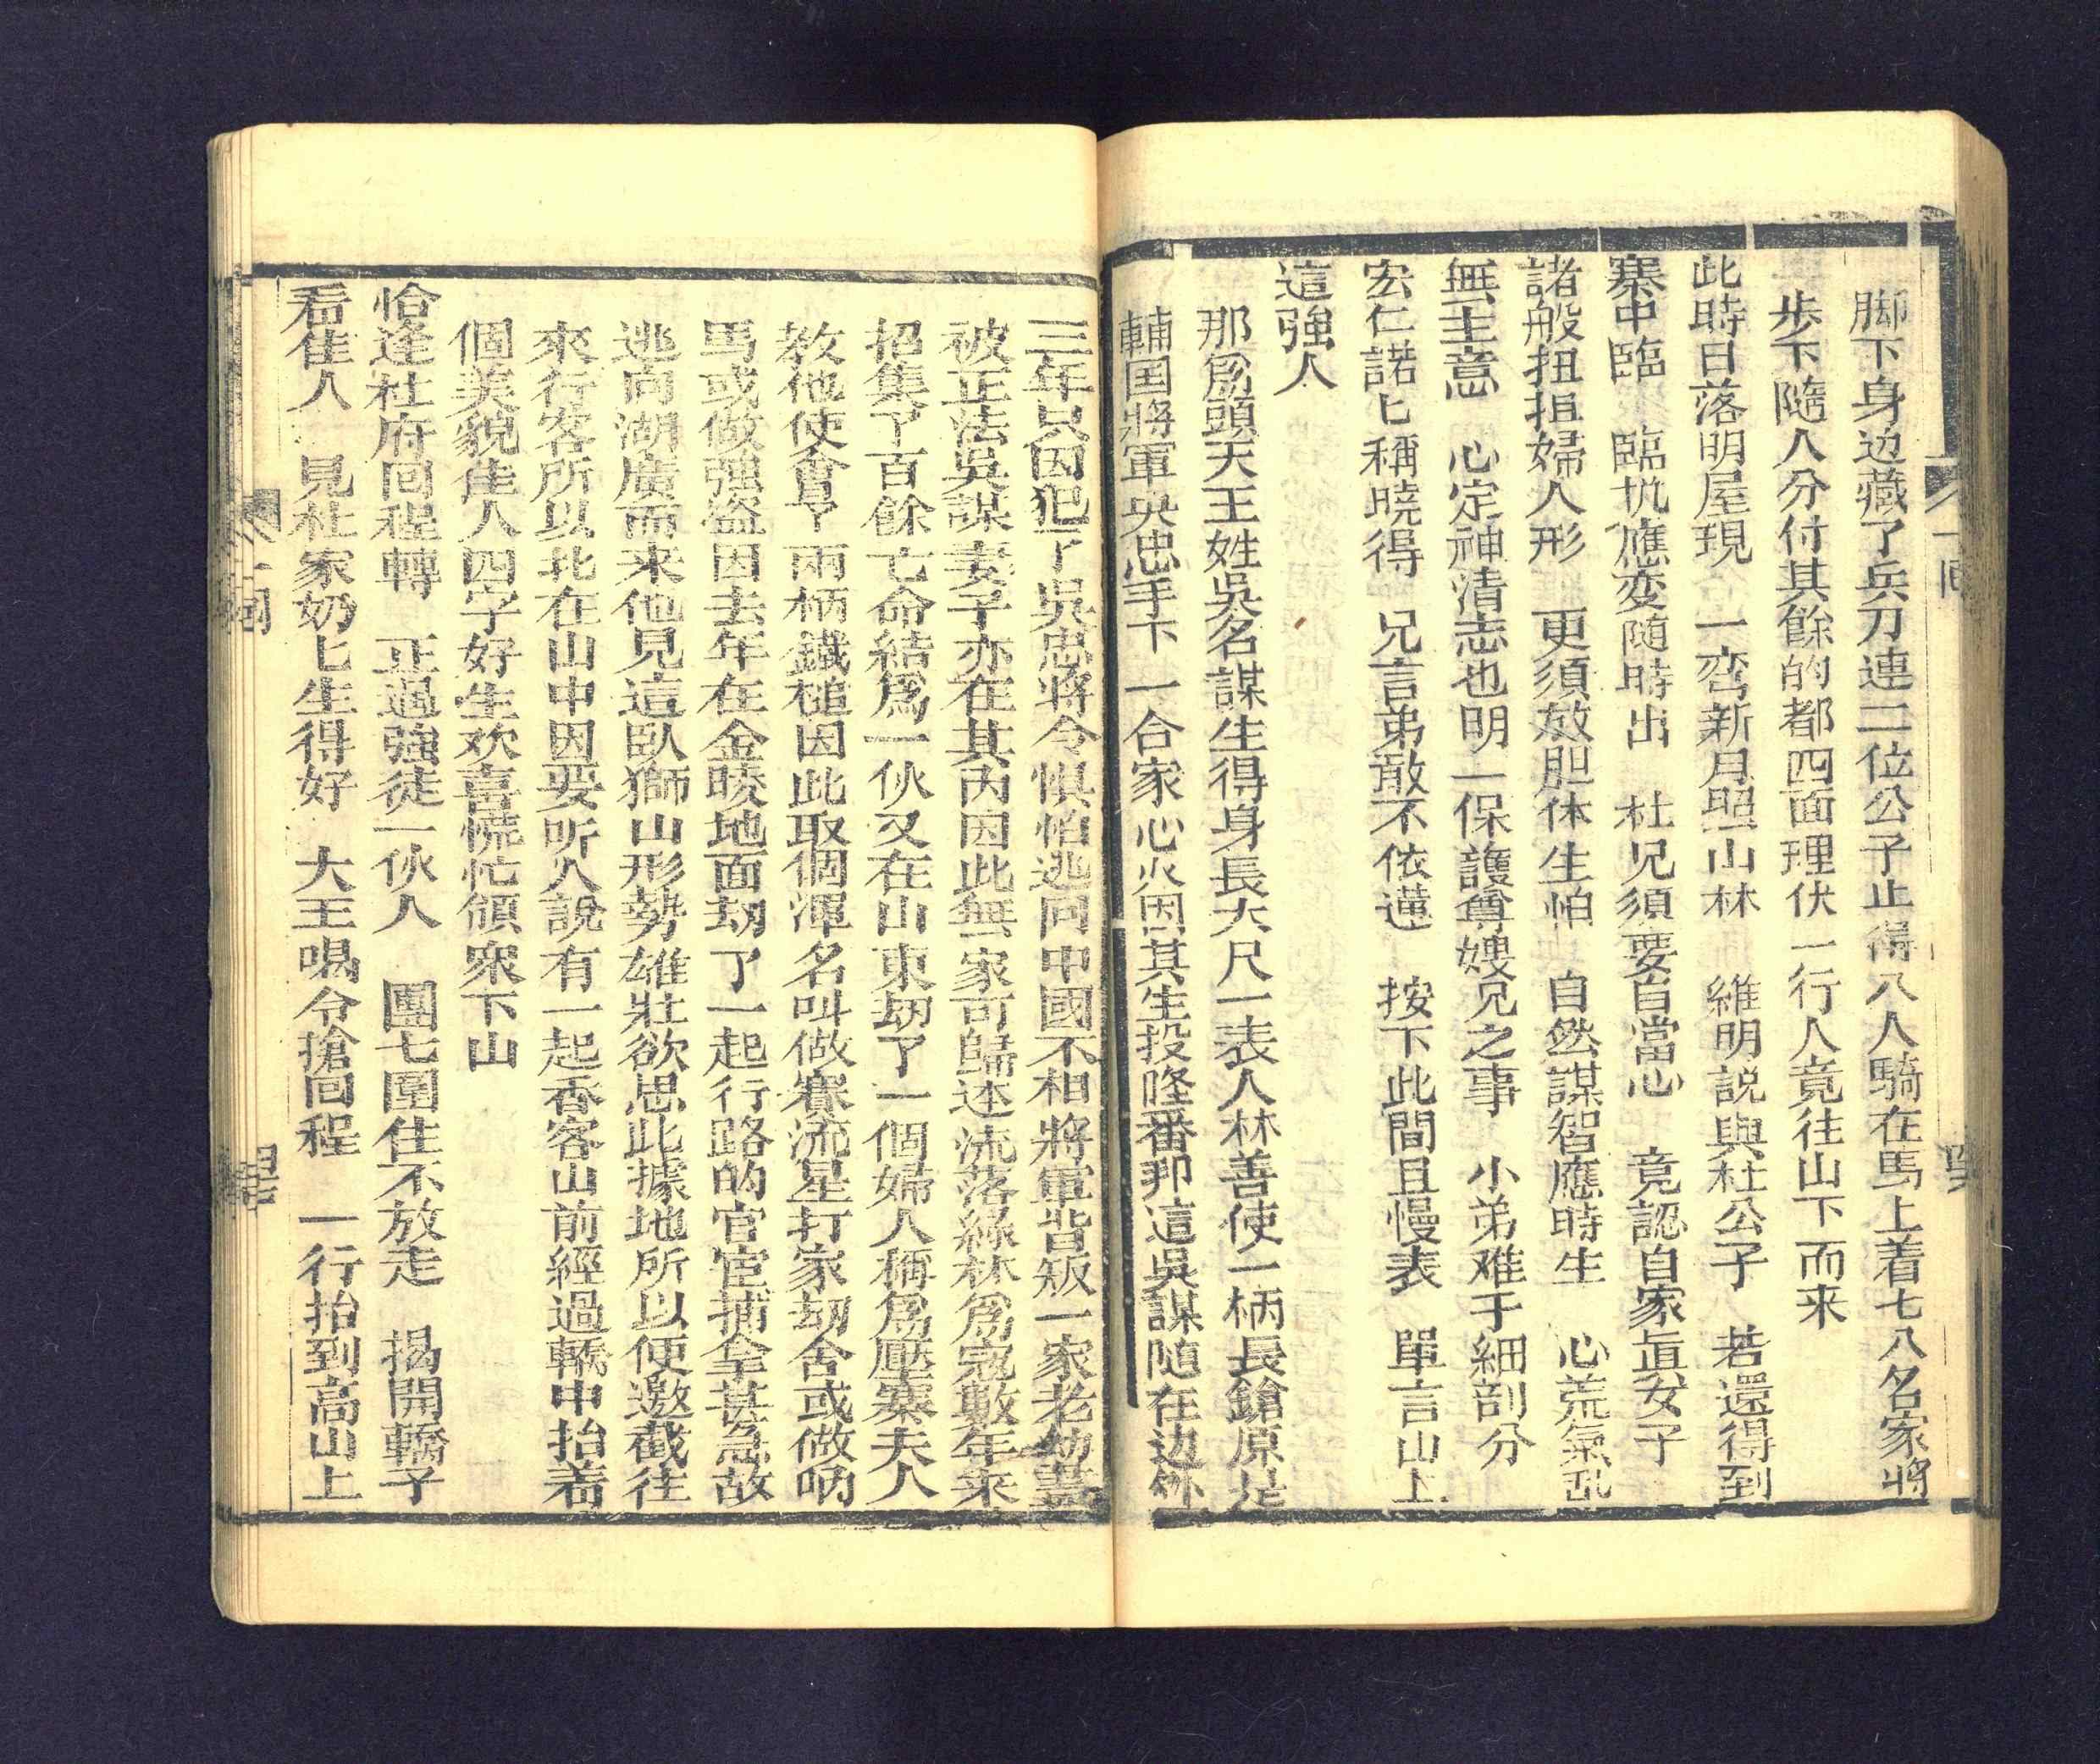 脚下身边藏了兵刀連二位公子止得八人騎在馬上着七八名家將
步下隨人分付其餘的都四面理伏一行人竟往山下而来
此時日落明星現 一弯新月照山林 維明説與杜公子 若還得到
寨中臨 臨机應変随時出 杜兄須要自當心 竟認自家眞女子
諸般扭扭婦人形 更須放胆休生怕 自然謀智應時生 心荒氣乱
無主意 心定神清志也明 一保護尊嫂兄之事 小弟难于細剖分
宏仁諾匕稱曉得 兄言弟敢不依遵 按下此間且慢表 單言山上
這強人
那爲頭天王姓吳名謀生得身長大尺一表人林善使一柄長鎗原是
輔国將軍吳忠手下一合家心火因其生投降番邦這吳謀随在边外
三年只因犯了吳忠將令惧怕逃同中國不想將軍背叛一家老幼盡
被正法吳謀妻子亦在其内因此無家可歸迯流落綠林爲寇數年來
招集了百餘亡命結爲一伙又在山東刼了一個婦人稱爲壓寨夫人
教他使會了兩柄鐵槌因此取個渾名叫做賽流星打家刼舍或做响
馬或做强盗因去年在金陵地面刼了一起行路的官宦捕拿甚急故
逃向湖廣而来他見這臥獅山形勢雄壯欲思此據地所以便邀截往
來行客所以北在山中因要听人說有一起香客山前經過轎中抬着
個美貌隹人四字好生欢喜慌忙領衆下山
恰逢杜府回程轉 正遇強徒一伙人 團七圍住不放走 揭開轎子
看佳人 見杜家奶匕生得好 大王喝令搶回程 一行抬到高山上